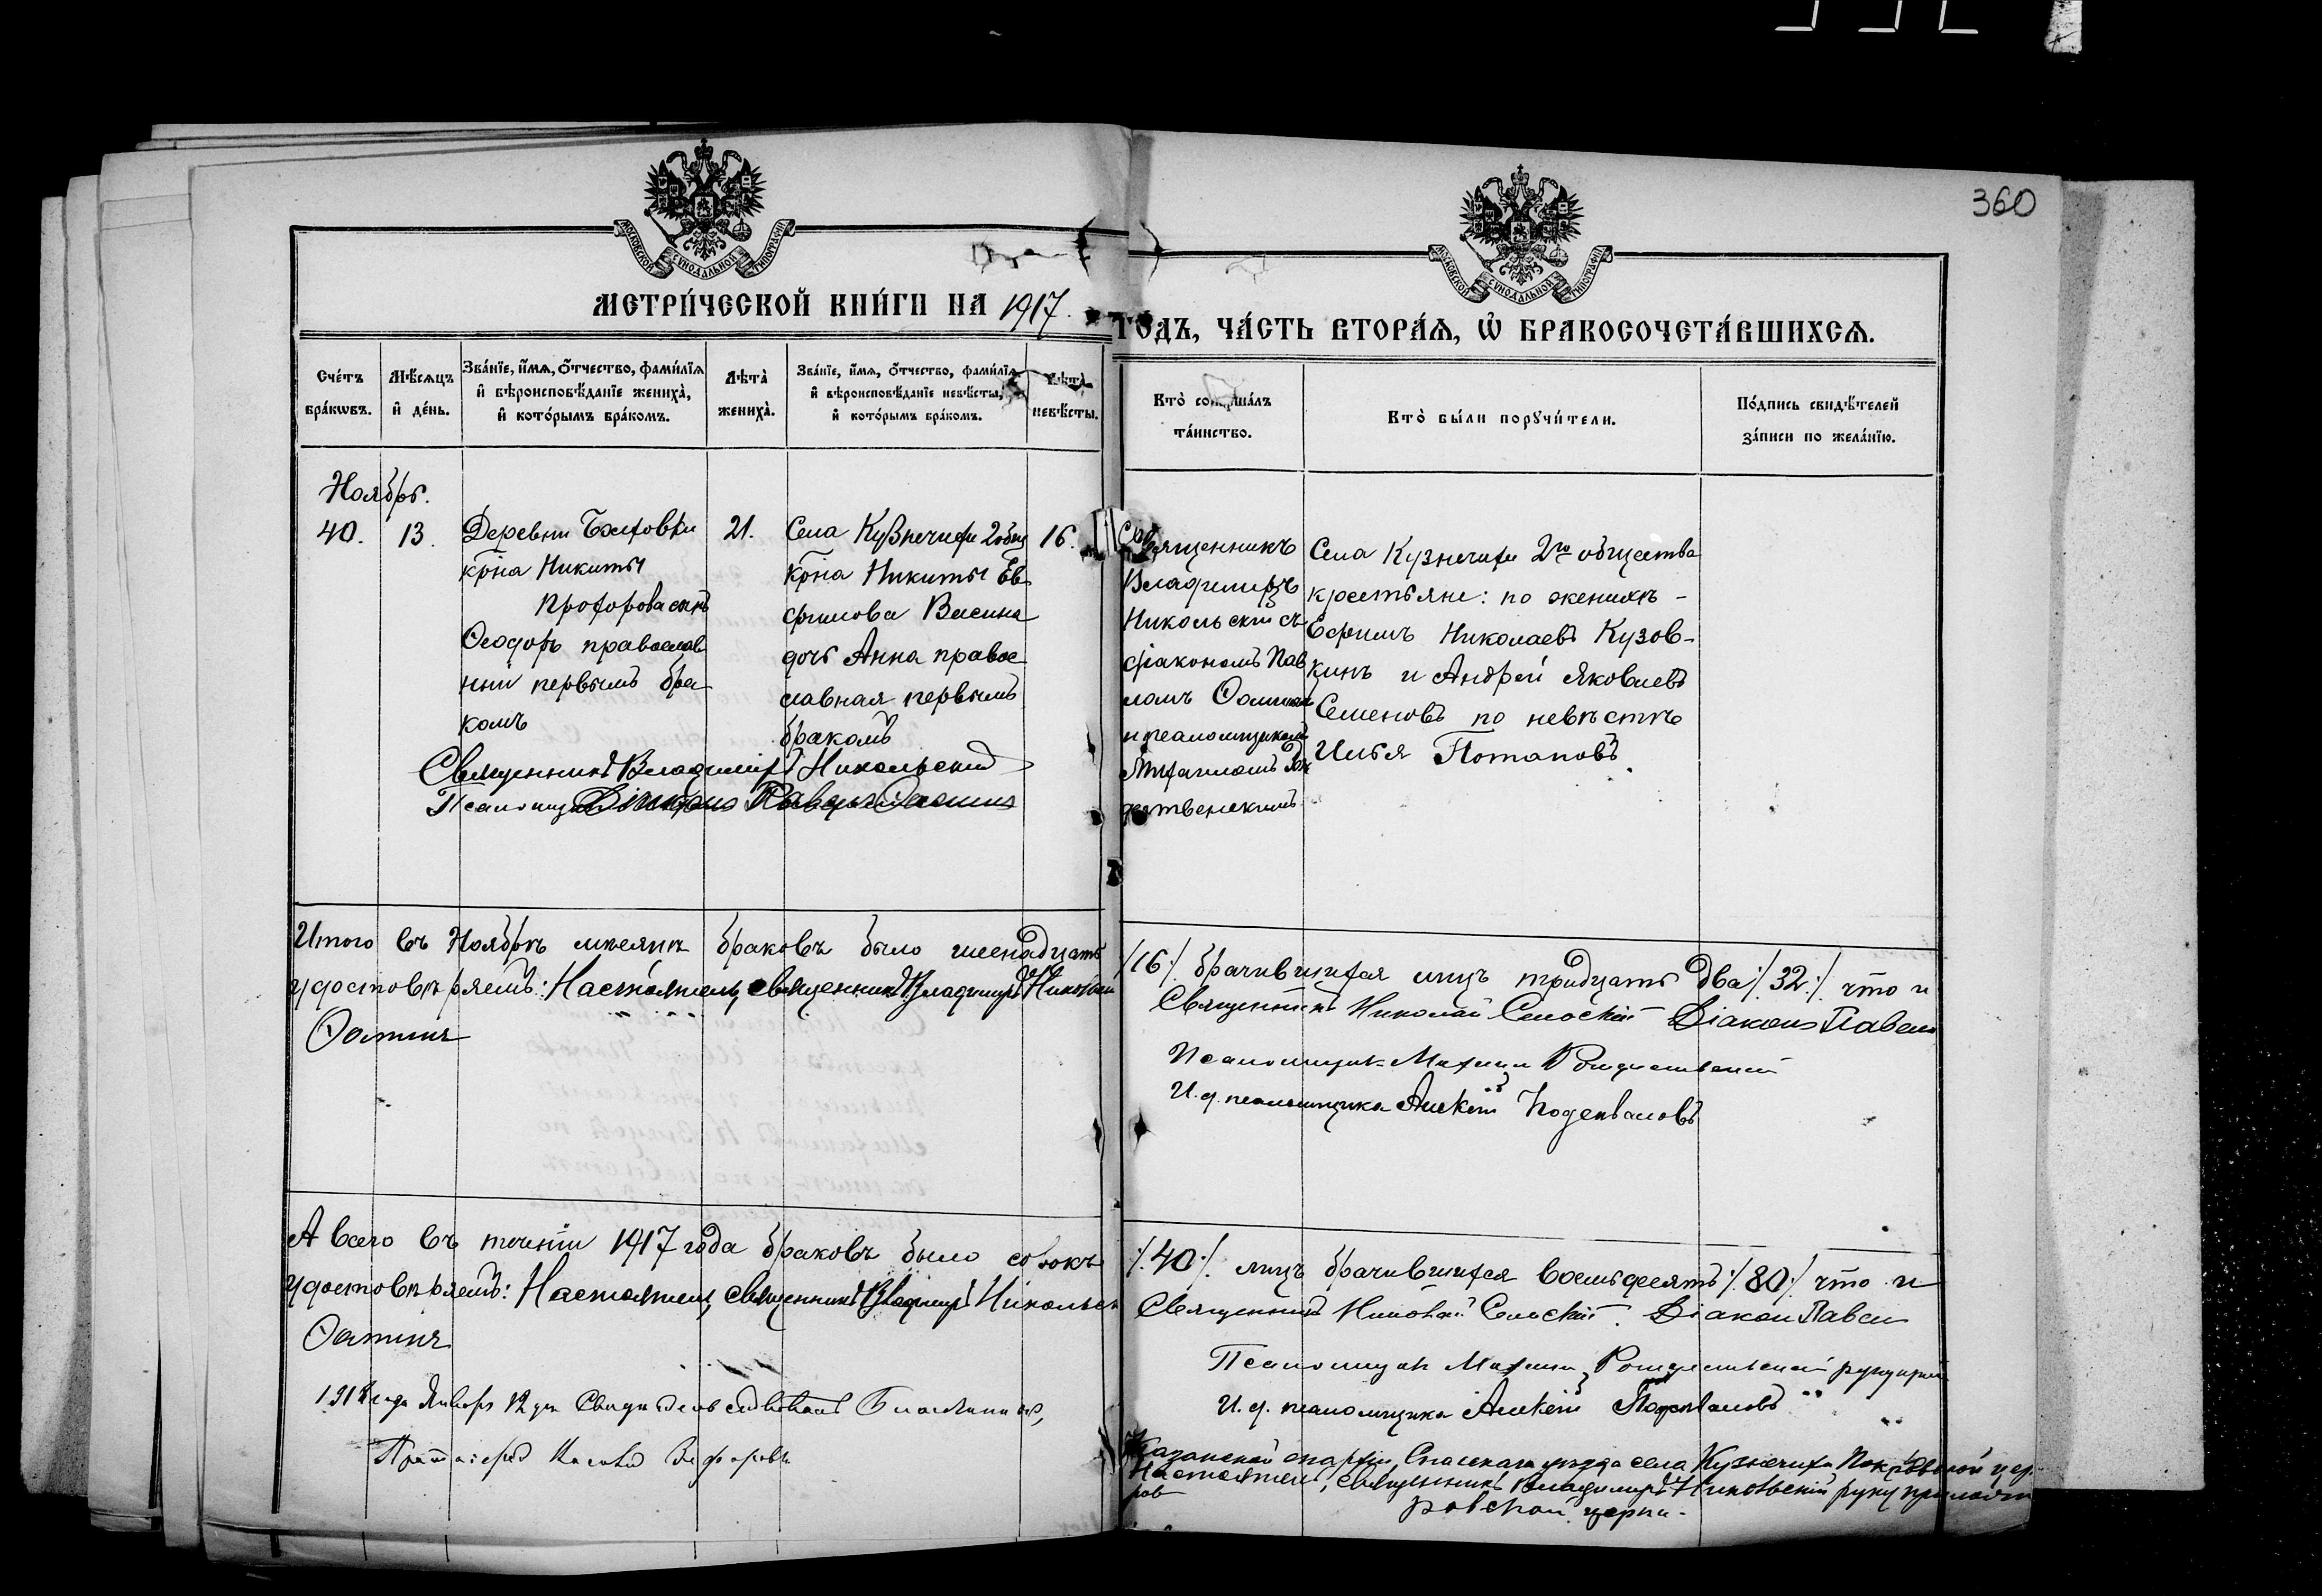 360
МОСКОВСКОЙ СУНОДАЛЬНОЙ ТИПОГРАФІИ
МОСКОВСКОЙ СУНОДАЛЬНОЙ ТИПОГРАФІИ
МЕТРИ́ЧЕСКОЙ КНИ́ГИ НА 1917.
ГОДЪ, ЧА́СТЬ ВТОРА́Ѧ, Ѡ҆ БРАКОСОЧЕТА́ВШИХСѦ.
Сче́тъ бра́кѡвъ.
Мѣ́сѧцъ и҆ де́нь.
Зва́нїе, и҆́мѧ, ѻ҆́тчество, фами́лїѧ
и҆ вѣроисповѣ́данїе жениха̀,
и҆ кото́рымъ бра́комъ.
Лѣта̀ жениха̀.
Зва́нїе, и҆́мѧ, ѻ҆́тчество, фами́лїѧ
и҆ вѣроисповѣ́данїе невѣ́сты,
и҆ кото́рымъ бра́комъ.
Лѣта̀ невѣ́сты.
Кто̀ соверша́лъ
та́инство.
Кто̀ бы́ли порꙋчи́тели.
По́дпись свидѣ́телей
за́писи по жела́нїю.
Ноябрь.
40.
13.
Деревни
крна Никиты
Прохорова сынъ
Ѳеодоръ православ
ный первымъ бра
комъ
21.
Села Кузнечихи 2 общ
крна Никиты Ев
фимова Васина
дочь Анна право
славная первымъ
бракомъ
16.
Священникъ
Владимиръ
Никольскій съ
діакономъ Пав
ломъ
и псаломщикомъ
Михаиломъ Рож
дественскимъ
Села Кузнечихи 2го общества
крестьяне: по женихѣ -
Ефимъ Николаевъ Кузов-
кинъ и Андрей Яковлевъ
Семеновъ по невѣстѣ
Илья Потаповъ.
Священникъ Владимиръ Никольскій
Діаконъ Павелъ
Итого въ Ноябрѣ мѣсяцѣ браковъ было шестнадцать
/16/. брачившихся лицъ тридцать два /32/. что и
удостовѣряемъ: Настоятель, священникъ Владимиръ Никольскій
Священникъ Николай Діаконъ Павелъ
Псаломщикъ Михаилъ Рождественскій
И. д. псаломщика Алексій
А всего въ теченіи 1917 года браковъ было сорокъ
/40/. лицъ брачившихся восемьдесятъ /80/ что и
удостовѣряемъ: Настоятель, священникъ Владимиръ Никольск
Священникъ Николай Діаконъ Павелъ
Псаломщикъ Михаилъ Рождественскій
И. д. псаломщика Алексій
1918 года Января 12 дня Свидѣтельствовалъ Благочинный,
Протоіерей
Казанской епархіи, Спасскаго уѣзда села Кузнечихи Покровской цер
Настоятель, священникъ Владимиръ Никольскій руку приложи
ровской церкви.